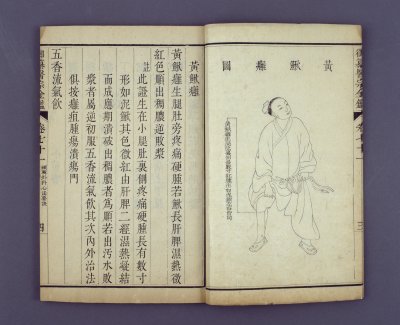 黃鰍癰圖
黃鰍癰
黃鰍癰生腿肚旁疼痛硬腫若鰍長肝脾濕熱微
紅色順出稠膿逆敗漿
註此證生在小腿肚裏側疼痛硬腫長有數寸
形如泥鰍其色微紅由肝脾二經濕熱凝結
而成應期潰破出稠膿者為順若出污水敗
漿者屬逆初服五香流氣飲其次內外治法
俱按癰疽腫瘍潰瘍門
五香流氣飲
卷七十一
四